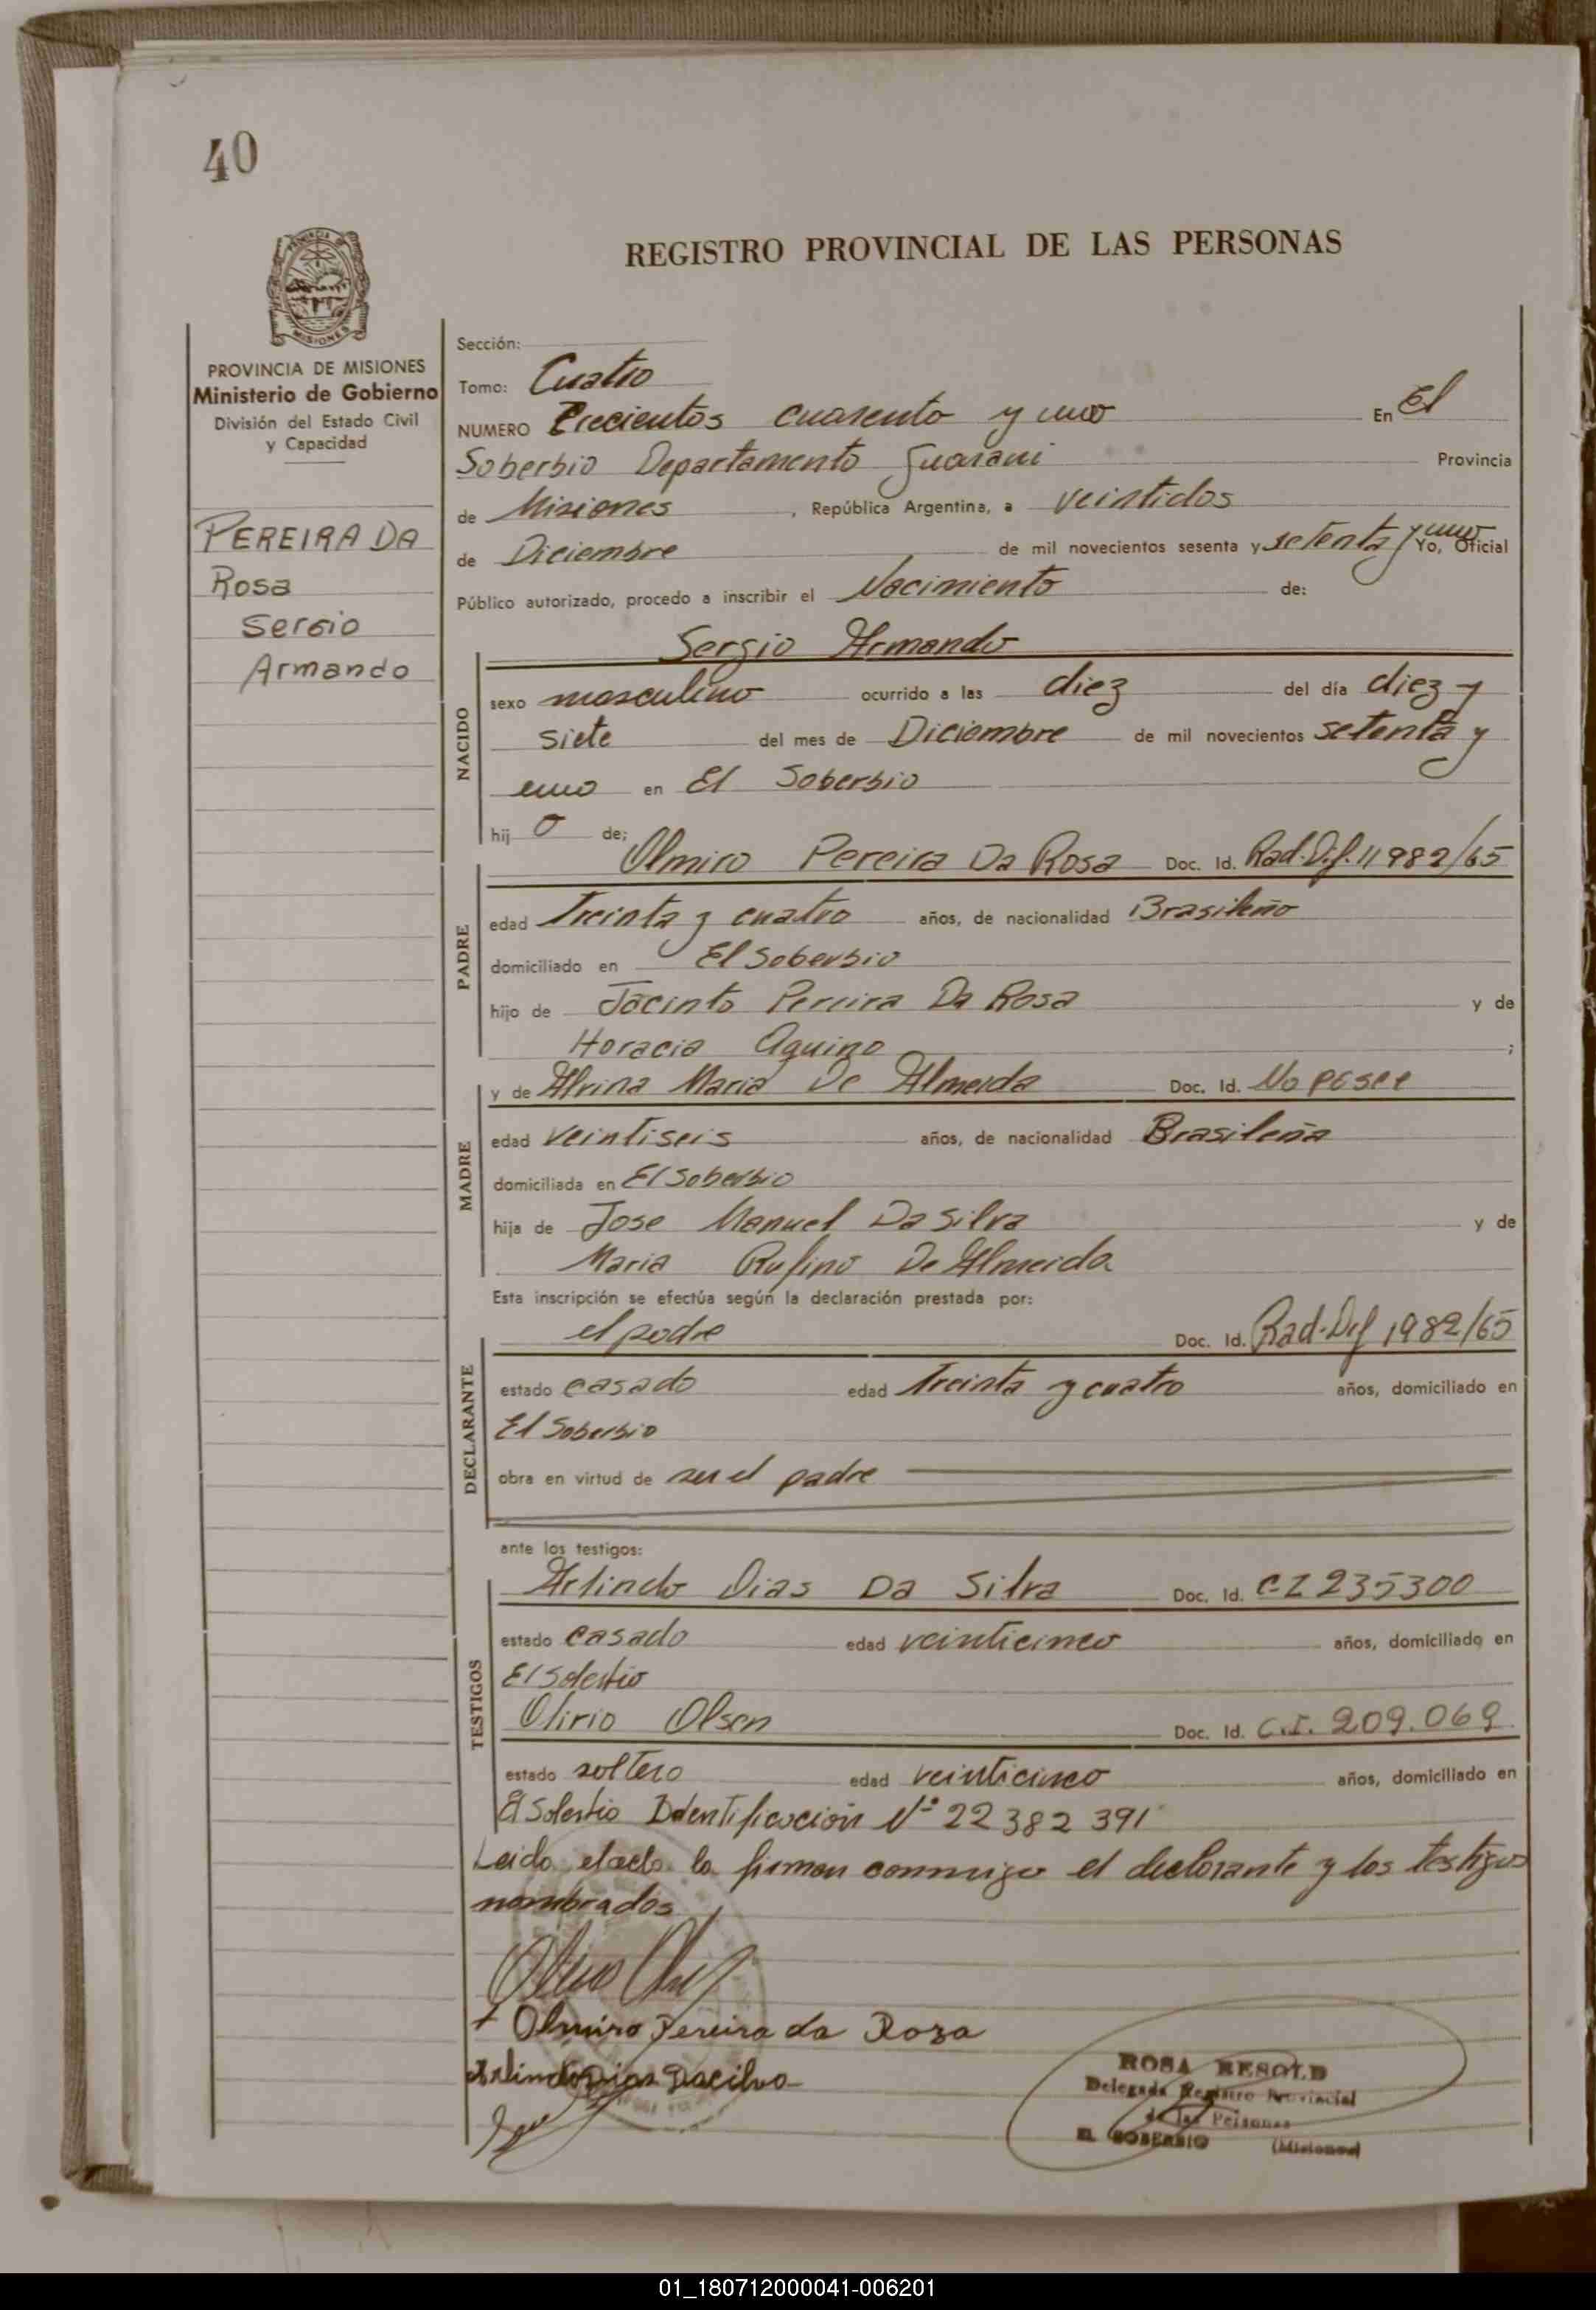 40
REGISTRO PROVINCIAL DE LAS PERSONAS
PROVINCIA DE MISIONES
MISIONES
PROVINCIA DE MISIONES
Ministerio de Gobierno
División del Estado Civil
y Capacidad
PEREIRA DA
Rosa
Sergio
Armando
Sección:
Tomo: Cuatro
NUMERO Trecientos cuarenta y uno En El
Soberbio Departamento Guarani Provincia
de Misiones, República Argentina, a veintidos
de Diciembre de mil novecientos sesenta y setenta y uno Yo, Oficial
Público autorizado, procedo a inscribir el Nacimiento de:
Sergio Armando
NACIDO
sexo masculino ocurrido a las diez del día diez y
siete del mes de Diciembre de mil novecientos setenta y
uno en El Soberbio
hij o de;
Olmiro Pereira Da Rosa Doc. Id. Rad. Dif. 11982/65
PADRE
edad Treinta y cuatro años, de nacionalidad Brasileño
domiciliado en El Soberbio
hijo de Jacinto Pereira Da Rosa y de
Horacia Aquino ;
y de Alvina Maria De Almeida Doc. Id. No posee
MADRE
edad veintiseis años, de nacionalidad Brasileña
domiciliada en El Soberbio
hija de Jose Manuel Da Silva y de
Maria Rufino De Almeida
Esta inscripción se efectúa según la declaración prestada por:
el padre Doc. Id. Rad. Dif 1982/65
DECLARANTE
estado casado edad Treinta y cuatro años, domiciliado en
El Soberbio
obra en virtud de ser el padre
ante los testigos:
Arlindo Dias Da Silva Doc. Id. CI 235300
TESTIGOS
estado casado edad veinticinco años, domiciliado en
El Soberbio
Olirio Olsen Doc. Id. C.I. 209.069
estado soltero edad veinticinco años, domiciliado en
El Soberbio Identificación Nº 22 382 391
Leida el acta la firman conmigo el declarante y los testigos
nombrados
+ Olmiro Pereira da Roza
Arlindo Dias Dacilva
ROSA RESOLD
Delegada Registro Provincial
de las Personas
EL SOBERBIO (Misiones)
01_180712000041-006201